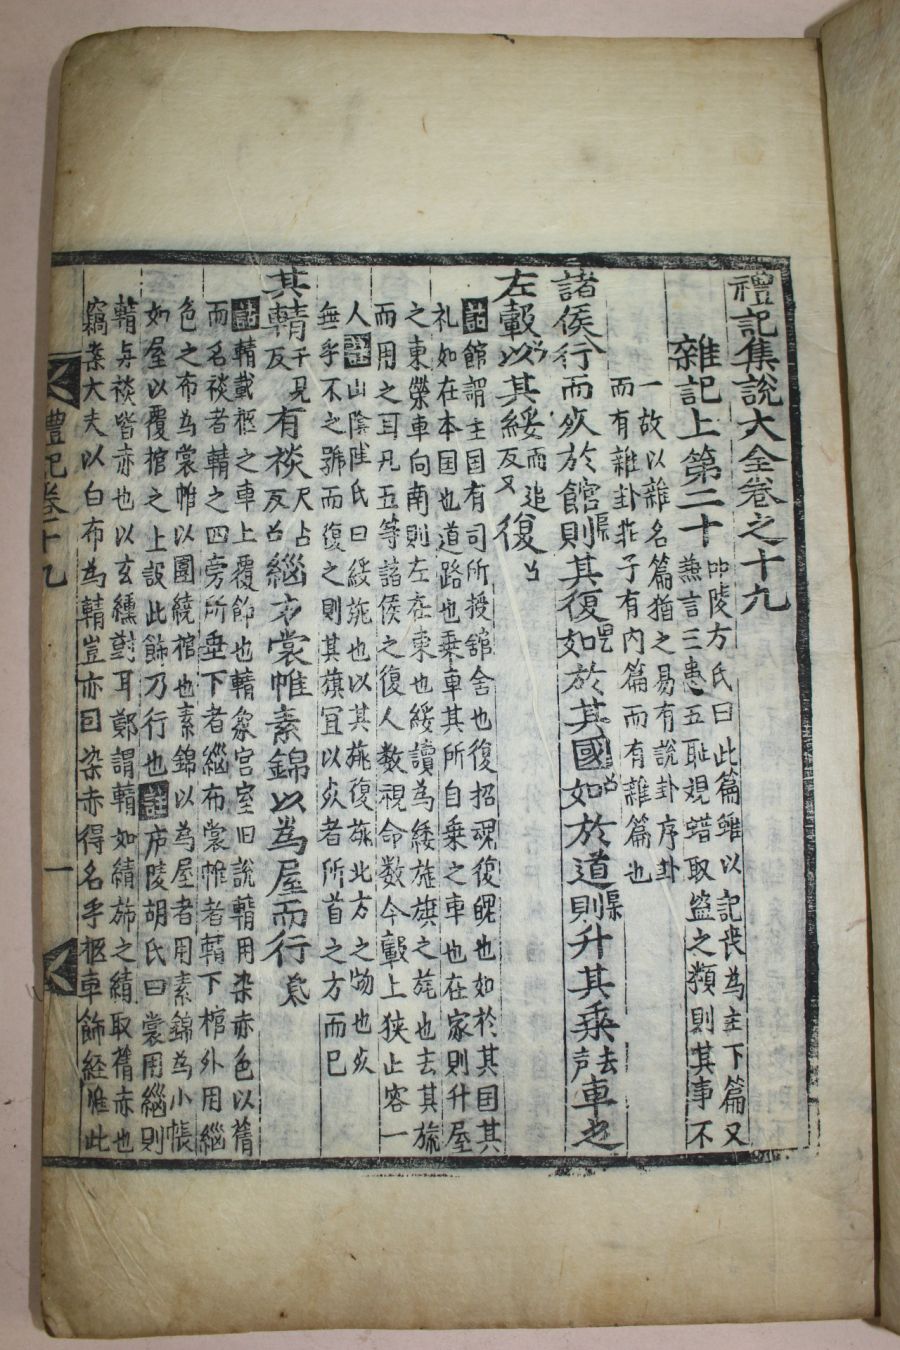 禮記集說大全卷之十九
雜記上第二十
陵方氏曰此篇雖以記喪為主下篇又
兼言三患五恥觀蜡取盜之類則其事不
一故以雜名篇猶之易有說卦序卦
而有雜卦非子有內篇而有雜篇也
諸侯行而死於館則其復如於其國如於道則升其乘去聲車之
左轂以其綏而追反又復
註館謂主国有司所授舘舍也復招魂復魄也如於其国其
礼如在本国也道路也乗車其所自乗之車也在家則升屋
之東榮車向南則左在東也綏讀為緌旌旗之旄也去其旒
而用之耳凡五等諸侯之復人数視命数今轂上狹止容一
人註山陰陸氏曰緌旄也以其旄復旅北方之物也死
無乎不之號而復之則其旗冝以死者所首之方而已
其輤千見反有裧尺占反緇布裳帷素錦以為屋而行
註輤載柩之車上覆飾也輤象宮室旧說輤用染赤色以蒨
而名裧者輤之四旁所垂下者緇布裳帷者輤下棺外用緇
色之布為裳帷以圍繞棺也素錦以為屋者用素錦為小帳
如屋以覆棺之上設此飾乃行也註庐陵胡氏曰裳用緇則
輤与裧皆亦也以玄纁對耳鄭謂輤如綪斾之綪取蒨赤也
竊案大夫以白布為輤豈亦曰染赤得名乎柩車飾経惟此
禮記卷十九 一